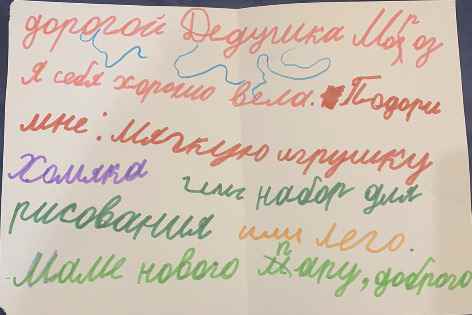 дорогой Дедушка Мороз
Я себя хорошо вела. Подори
мне: мягкую игрушку
Хомяка или набор для
рисования или лего.
Маме нового пару, доброго